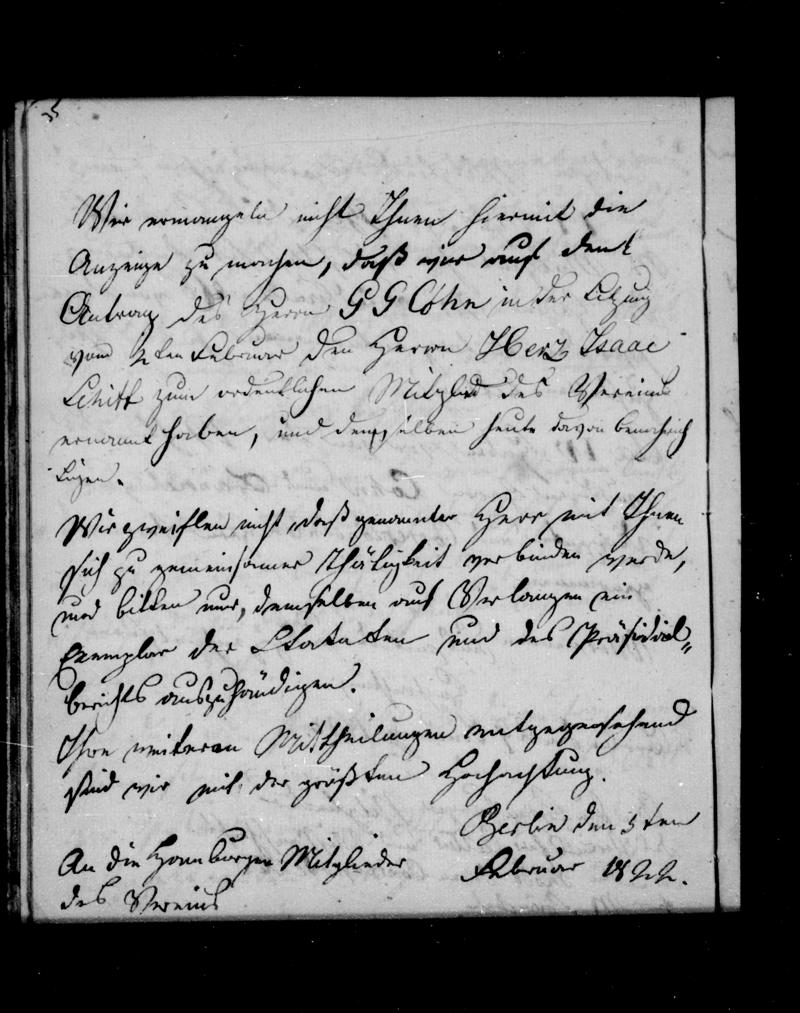 35
Wir ermangeln nicht Ihnen hiermit die
Anzeige zu machen, daß wir auf den
Antrag des Herrn G G Cohn in der Sitzung
vom 2ten Februar den Herrn Herz Isaac
Schiff zum ordentlichen Mitglied des Vereins
ernannt haben, und demselben heute davon benachrich
tigen.
Wir zweiflen nicht, daß genannter Herr mit Ihnen
sich zu gemeinsamer Thätigkeit verbinden werde,
und bitten nur, demselben auf Verlangen ein
Exemplar der Statuten und des Präsidial„
berichts auszuhändigen.
Ihren weiteren Mittheilungen entgegensehend
sind wir mit der größten Hochachtung.
Berlin den 3ten
Februar 1822.
An die Hamburger Mitglieder
des Vereins